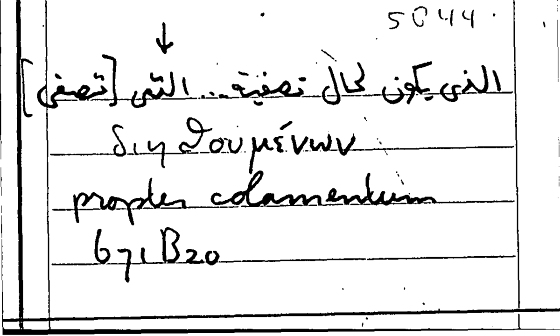 5044.
الذى يكون لحال تصفية... التى [تصفى]
διηθουμένων
propter colamentum
671 B20